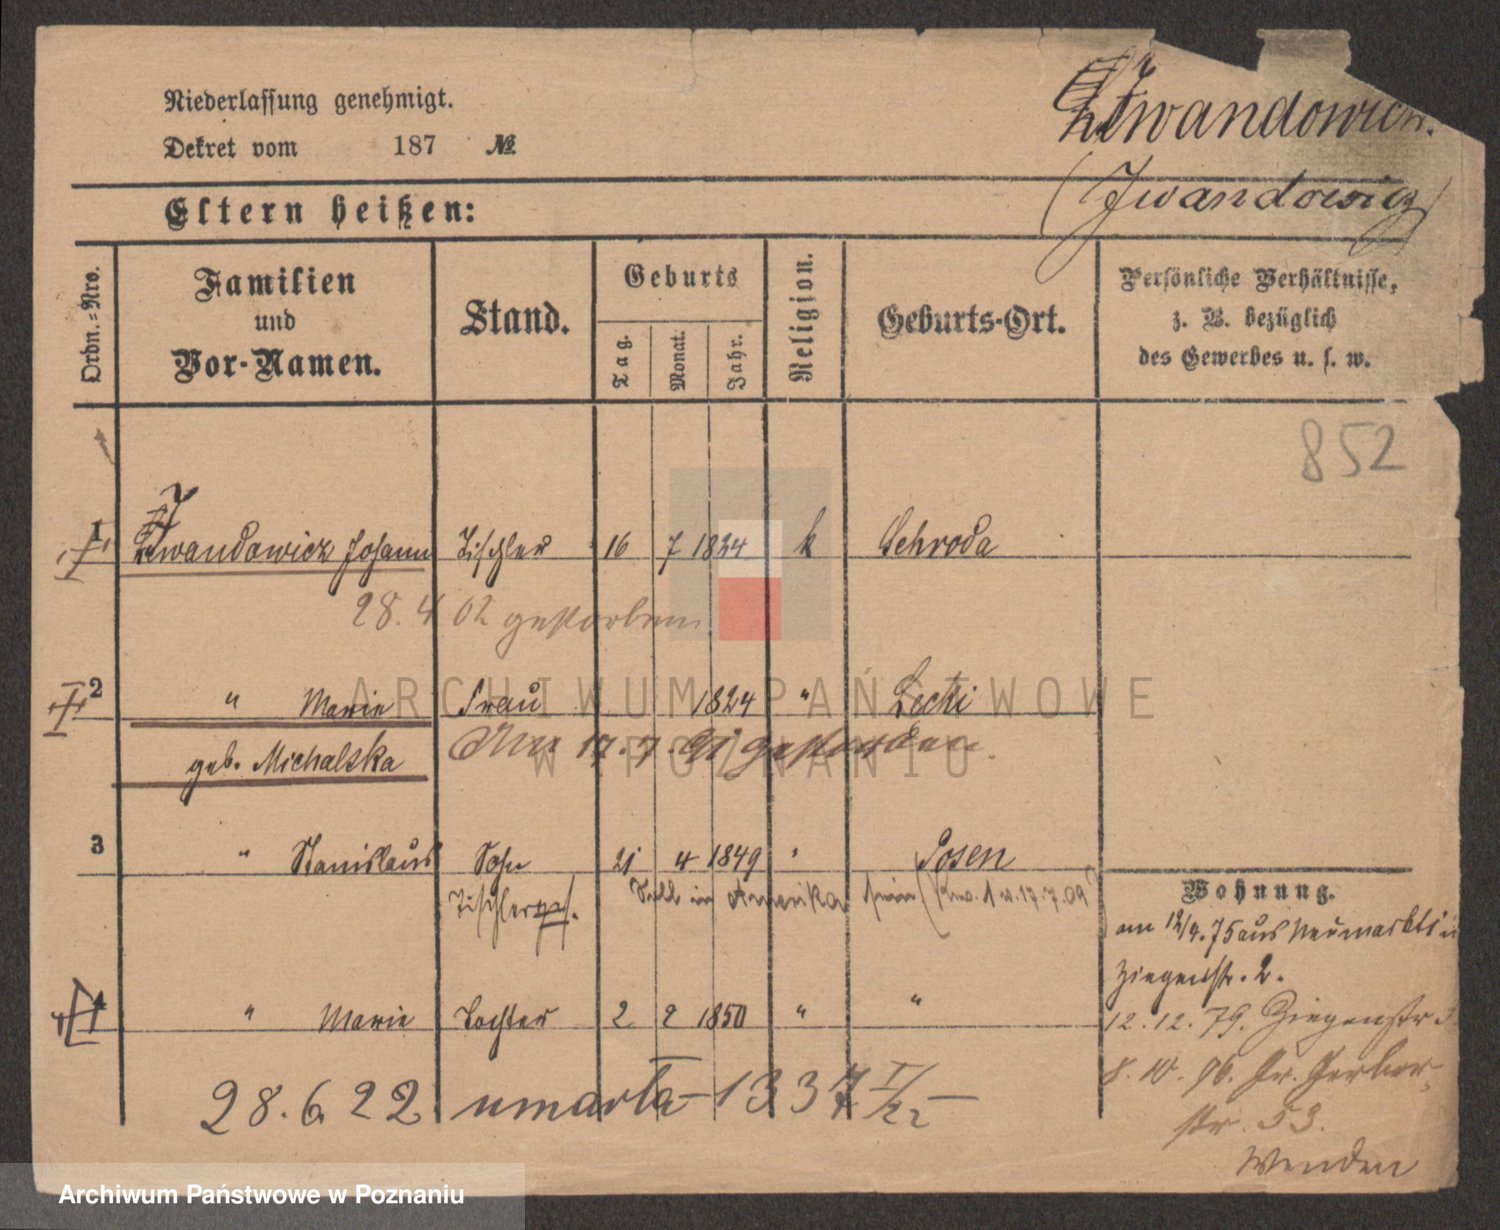 Niederlassung genehmigt.
Dekret vom 187 №
Iwandowicz.
(Iwandowicz)
Eltern heißen:
Ordn.=Nro.
Familien
und
Vor-Namen.
Stand.
Geburts
Tag.
Monat.
Jahr.
Religion.
Geburts-Ort.
Persönliche Verhältnisse,
z. B. bezüglich
des Gewerbes u. s. w.
852
1 Iwandowicz Johann Tischler 16 7 1824 k Schroda
28. 4 02 gestorben
2 " Marie Frau 1824 "
geb. Michalska
17. 7. 91 gestorben.
3 " Stanislaus Sohn 21 4 1849 " Posen
Tischlerges. Soll in Amerika sein 17.7.09
Wohnung.
am 12/4.75 aus Neumarkt
Ziegenstr. 2.
4 " Marie Tochter 2 2 1850 " "
12. 12. 79. Ziegenstr
8. 10. 96. Gr. Gerber-
str. 53.
28. 6 22 umarła - 1337 I/22 -
Wenden
ARCHIWUM PAŃSTWOWE
W POZNANIU
Archiwum Państwowe w Poznaniu